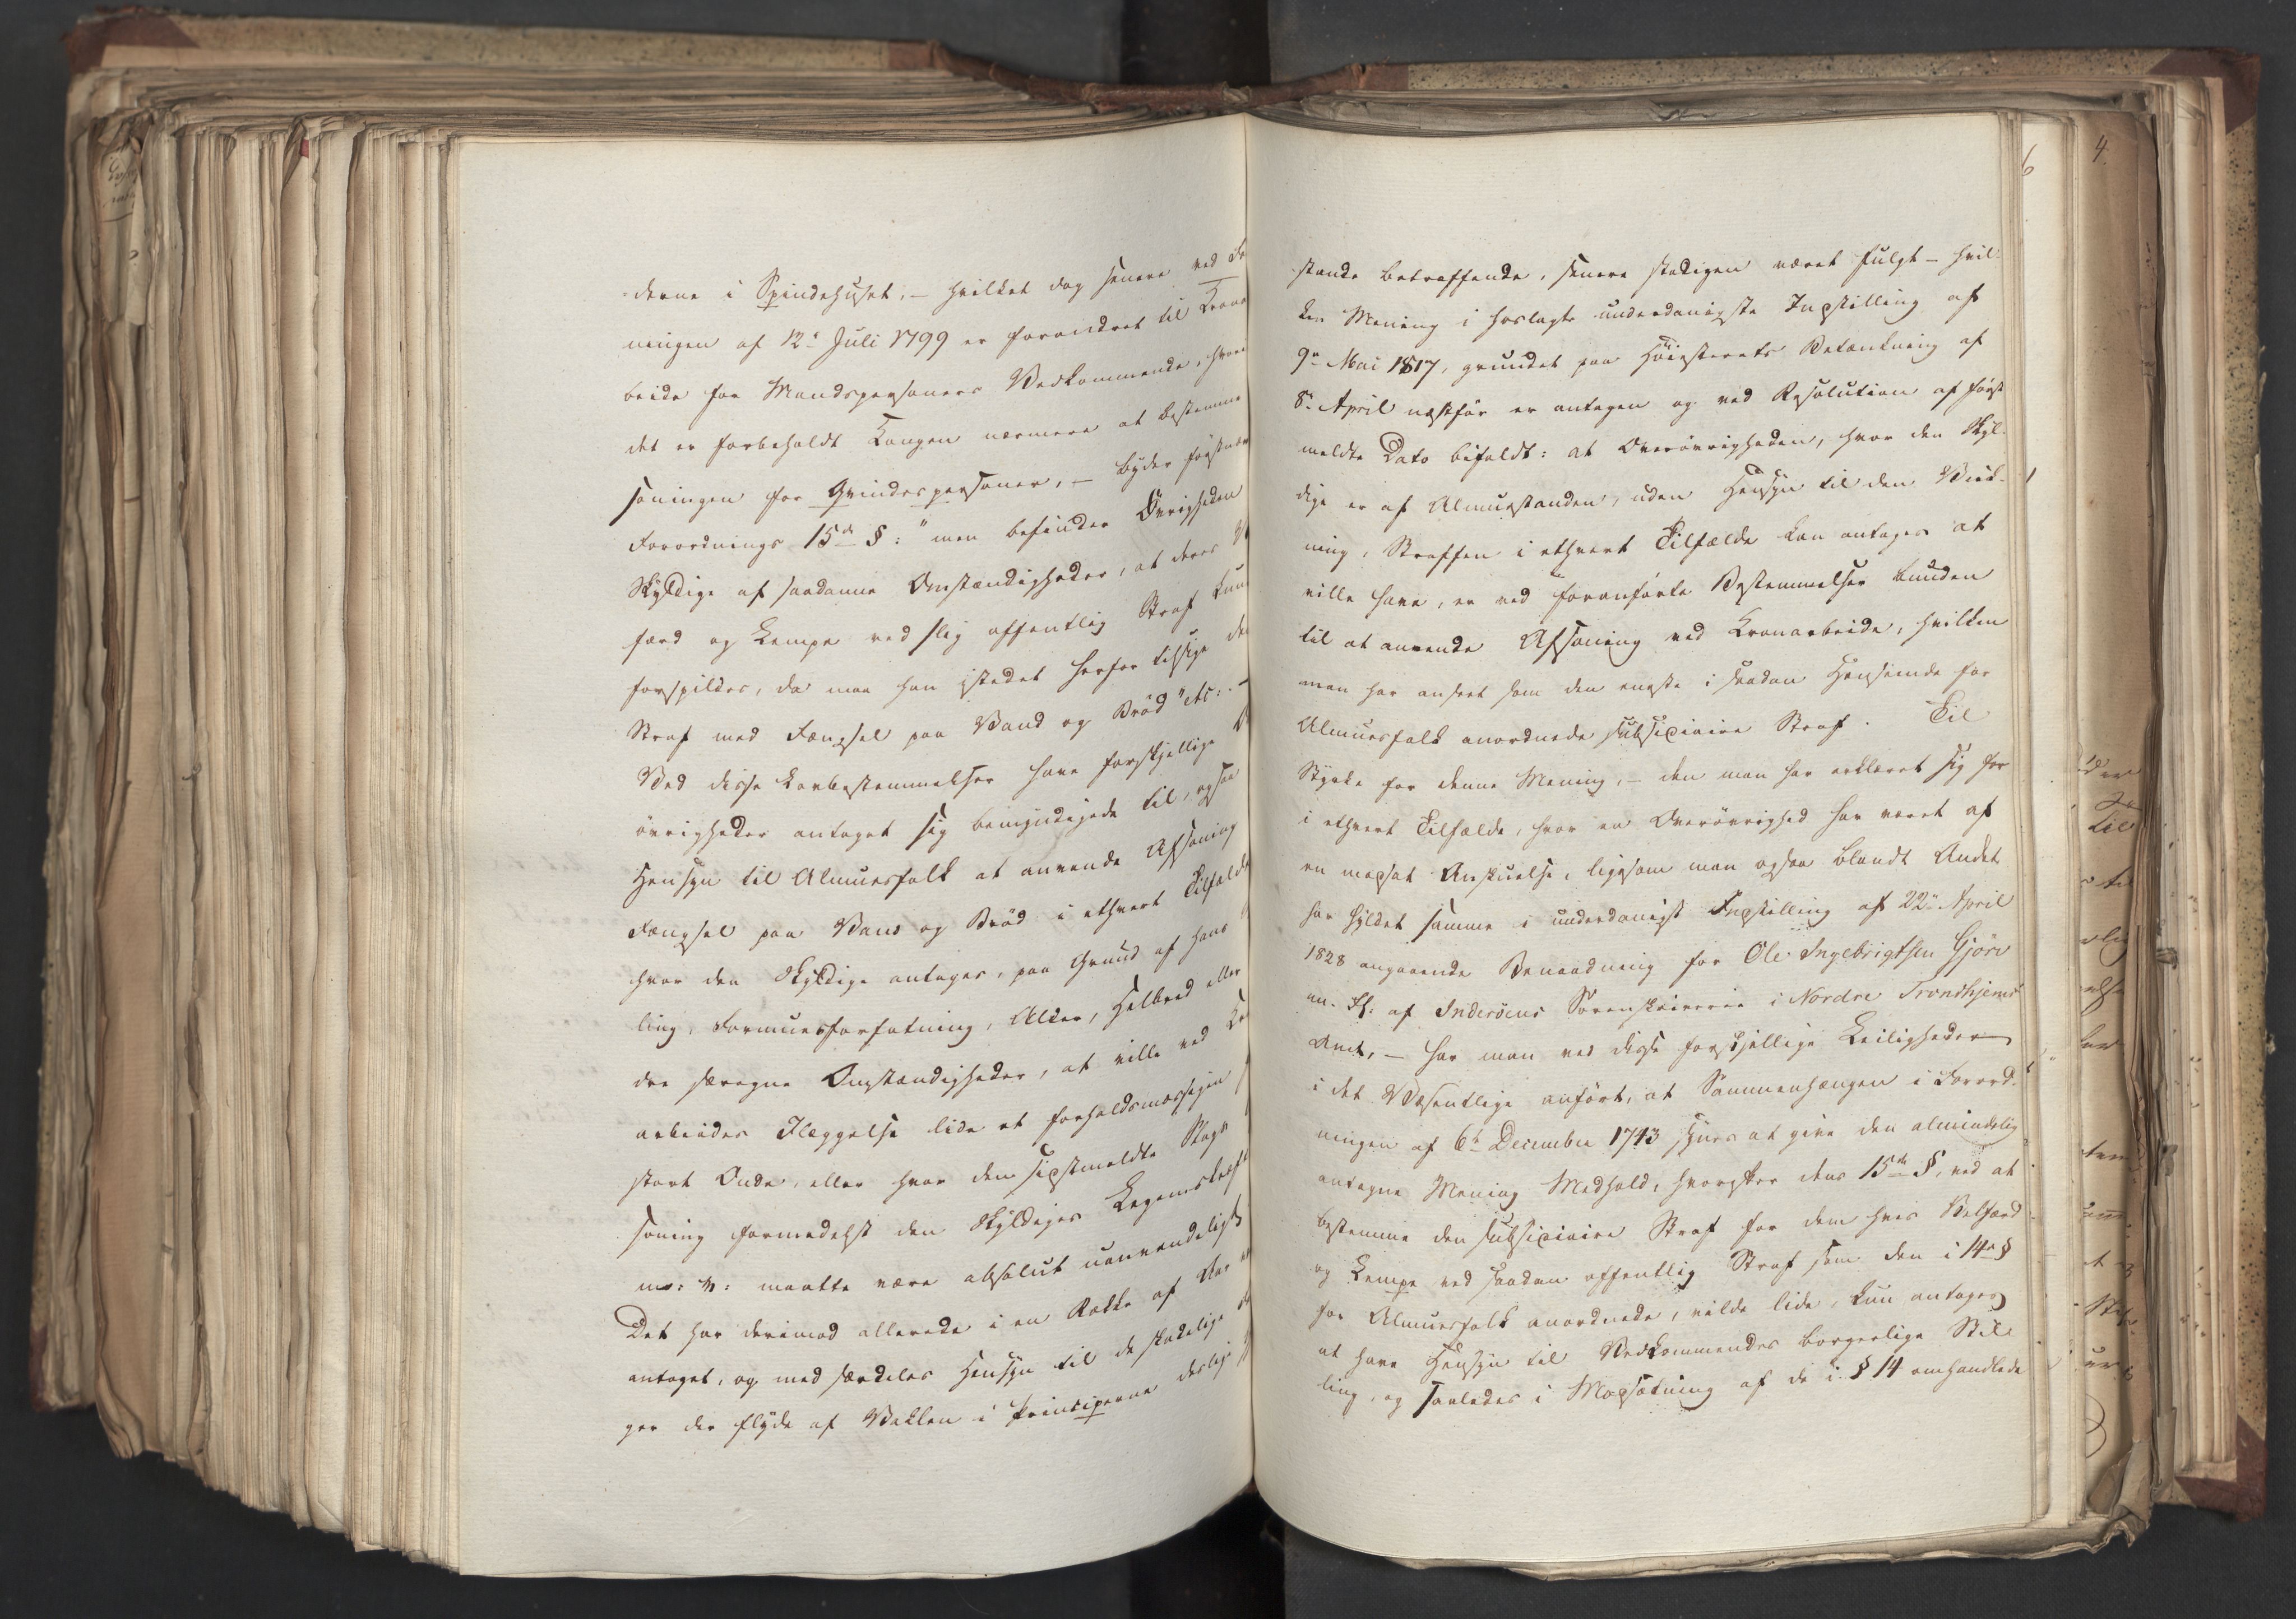 derne i Spindehuset, – hvilket dog senere ved Fo
ningen af 12te Juli 1799 er forandret til Krona
beide for Mandspersoners Vedkommende, hvor
det er forbeholdt Kongen nærmere at bestemme
soningen for Qvindespersoner, – byder først
Forordnings 15de §: "men befindes Øvrigheden
Skyldige af saadanne Omstændigheder, at deres V
færd og Lempe ved slig offentlig Straf kun
forspildes, da maa han istedet herfor tilsige de
Straf med Fængsel paa Vand og Brød" etc: –
Ved disse Lovbestemmelser have forskjellige
øvrigheder antaget sig bemyndigede til, ogsaa
Hensyn til Almuesfolk at anvende Afsoning
Fængsel paa Vand og Brød i ethvert Tilfælde
hvor den Skyldige antages, paa Grund af hans
ling, Formuesforfatning, Alder, Helbred eller
dre særegne Omstændigheder, at ville ved Kr
arbeides Ilæggelse lide et forholdsmæssigen
stort Onde, eller hvor den sidstmeldte Slags
soning formedelst den Skyldiges Legemskræft
m: v: maatte være absolut uanvendeligt
Det har derimod allerede i en Række af Aar
antaget, og med særdeles Hensyn til de skadelige
ger der flyde af Vaklen i Principerne deslige
6
4
stande betræffende, senere stedigen været fulgt – hvil-
ken Mening i hoslagte underdanigste Indstilling af
9de Mai 1817, grundet paa Høiesterets Betænkning af
8de April næstfør er antagen og ved Resolution af først
meldte Dato bifaldt: at Overøvrigheden, hvor den Skyl-
dige er af Almuestanden, uden Hensyn til den Virk-
ning, Straffen i ethvert Tilfælde kan antages at
ville have, er ved foranførte Bestemmelser bunden
til at anvende Afsoning ved Kronarbeide, hvilken
man har anseet som den eneste i saadan Henseende for
Almuesfolk anordnede subsidiaire Straf. Til
Styrke for denne Mening, – den man har erklæret sig for
i ethvert Tilfælde, hvor en Overøvrighed har været af
en modsat Anskuelse, ligesom man ogsaa blandt Andet
har hyldet samme i underdanigst Indstilling af 22de April
1828 angaaende Benaadning for Ole Ingebrigtsen Gjørv
m. Fl. af Inderøens Sorenskriverie i Nordre Trondhjems
Amt, – har man ved disse forskjellige Leiligheder
i det Væsentlige anført, at Sammenhængen i Forord-
ningen af 6te December 1743 synes at give den almindelig
antagne Mening Medhold, hvorefter dens 15de §, ved at
bestemme den subsidiaire Straf for dem hvis Velfærd
og Lempe ved saadan offentlig Straf som den i 14de §
for Almuesfolk anordnede, vilde lide, kun antages
at have Hensyn til Vedkommendes borgerlige Stil-
ling, og saaledes i Modsætning af de i § 14 omhandlede